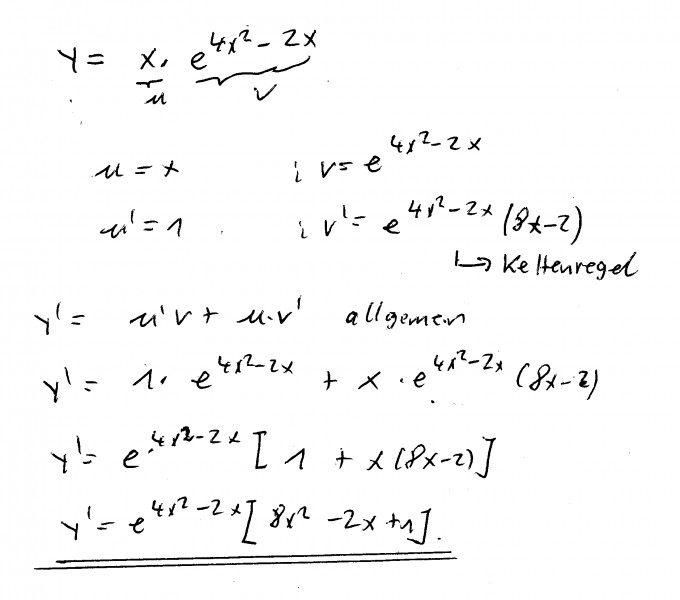 y = x · e^(4x² - 2x)
u v
u = x ; v = e^(4x² - 2x)
u' = 1 ; v' = e^(4x² - 2x) (8x-2)
↳ Kettenregel
y' = u'v + u·v' allgemein
y' = 1 · e^(4x²-2x) + x · e^(4x²-2x) (8x-2)
y' = e^(4x²-2x) [ 1 + x(8x-2)]
y' = e^(4x²-2x) [ 8x² - 2x + 1].